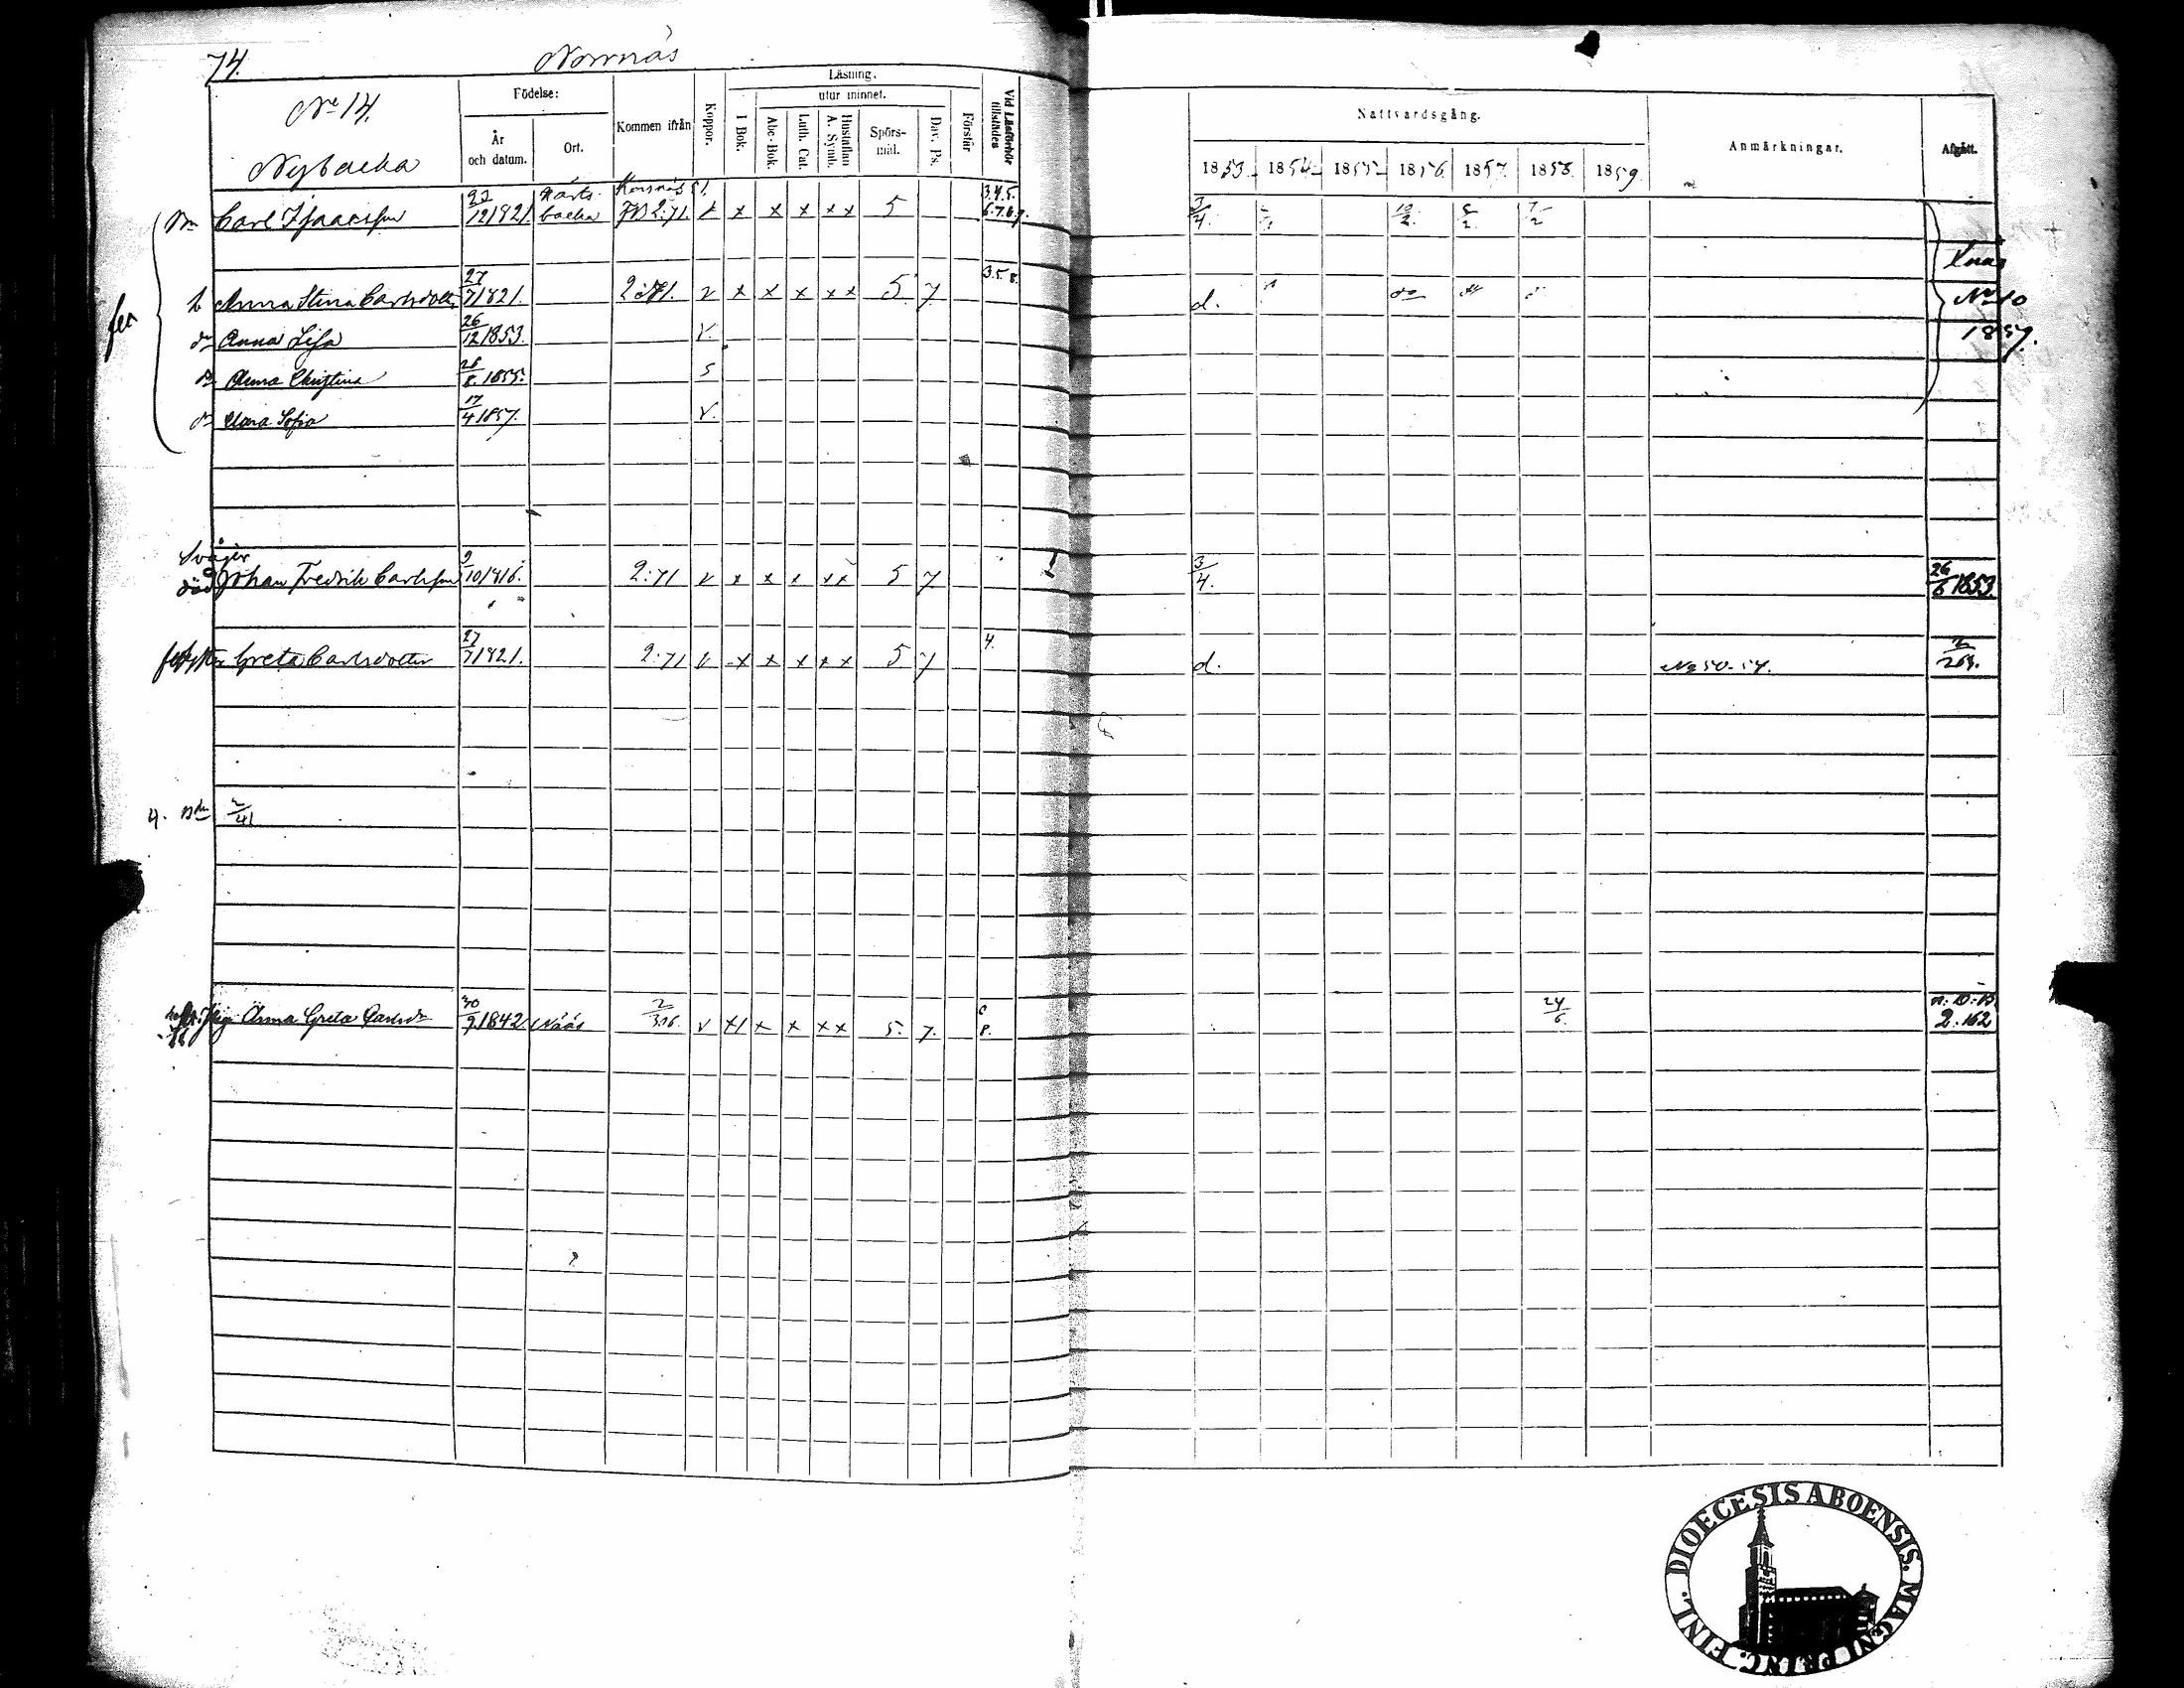 74. Norrnäs
No 14.
Nybacka
Födelse:
År och datum.
Ort.
Kommen ifrån
Koppor.
Läsning.
I Bok.
utur minnet.
Abc-Bok.
Luth. Cat.
Hustaflan A. Symb.
Spörs-mål.
Dav. Ps.
Förstår
Vid Läsförhör tillstädes
Nattvardsgång.
1853. 1854. 1855. 1856. 1857. 1858. 1859.
Anmärkningar.
Afgått.
Carl Isaacsson 12 1821. backa Korsnäs 2:71. v x x x x x 5 3/4. 10/2.
h Anna Stina Carlsdotter 27/7 1821. 2:71. v x x x x x 5 7 3.5.8. d. do
dr Anna Lisa 26/12 1853. v.
dr Anna Christina 28/8. 1855. s
dr Clara Sofia 17/4 1857. v.
No 10
1857.
Svåger
död Johan Fredrik Carlsson 9/10 1816. 2:71 v x x x x x 5 7 3/4. 26/6 1853.
Greta Carlsdotter 27/7 1821. 2:71 v x x x x x 5 7 4. d. No 50-54. 2/269.
4. 2/41
Anna Greta Carlsdr 30/9 1842 Nääs 2/316. v x x x x x 5. 7. 8. 24/6. 2:162
DIOECESIS ABOENSIS. MAGNI PRINC. FINL.